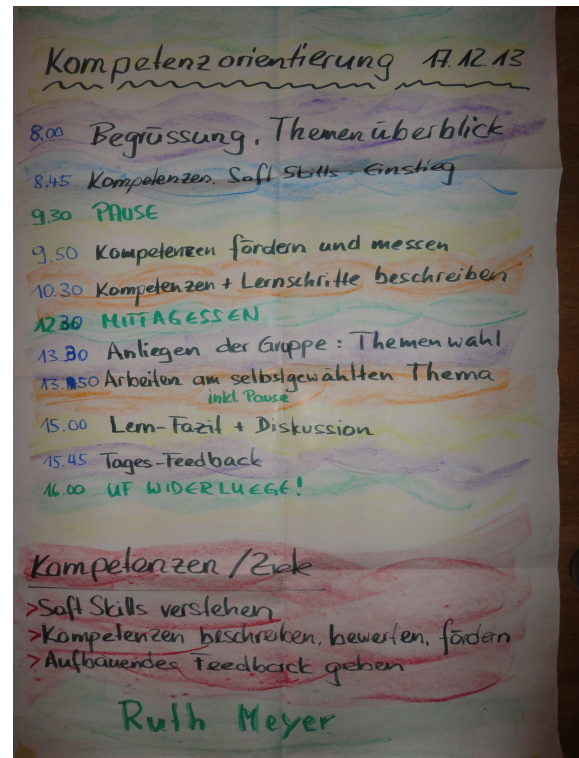 Kompetenzorientierung 17.12.13
8.00 Begrüssung, Themenüberblick
8.45 Kompetenzen, Soft Skills: Einstieg
9.30 PAUSE
9.50 Kompetenzen fördern und messen
10.30 Kompetenzen + Lernschritte beschreiben
12.30 MITTAGESSEN
13.30 Anliegen der Gruppe: Themenwahl
13.50 Arbeiten am selbstgewählten Thema
inkl Pause
15.00 Lern-Fazit + Diskussion
15.45 Tages-Feedback
16.00 UF WIDERLUEGE!
Kompetenzen / Ziele
>Soft Skills verstehen
>Kompetenzen beschreiben, bewerten, fördern
>Aufbauendes Feedback geben
Ruth Meyer